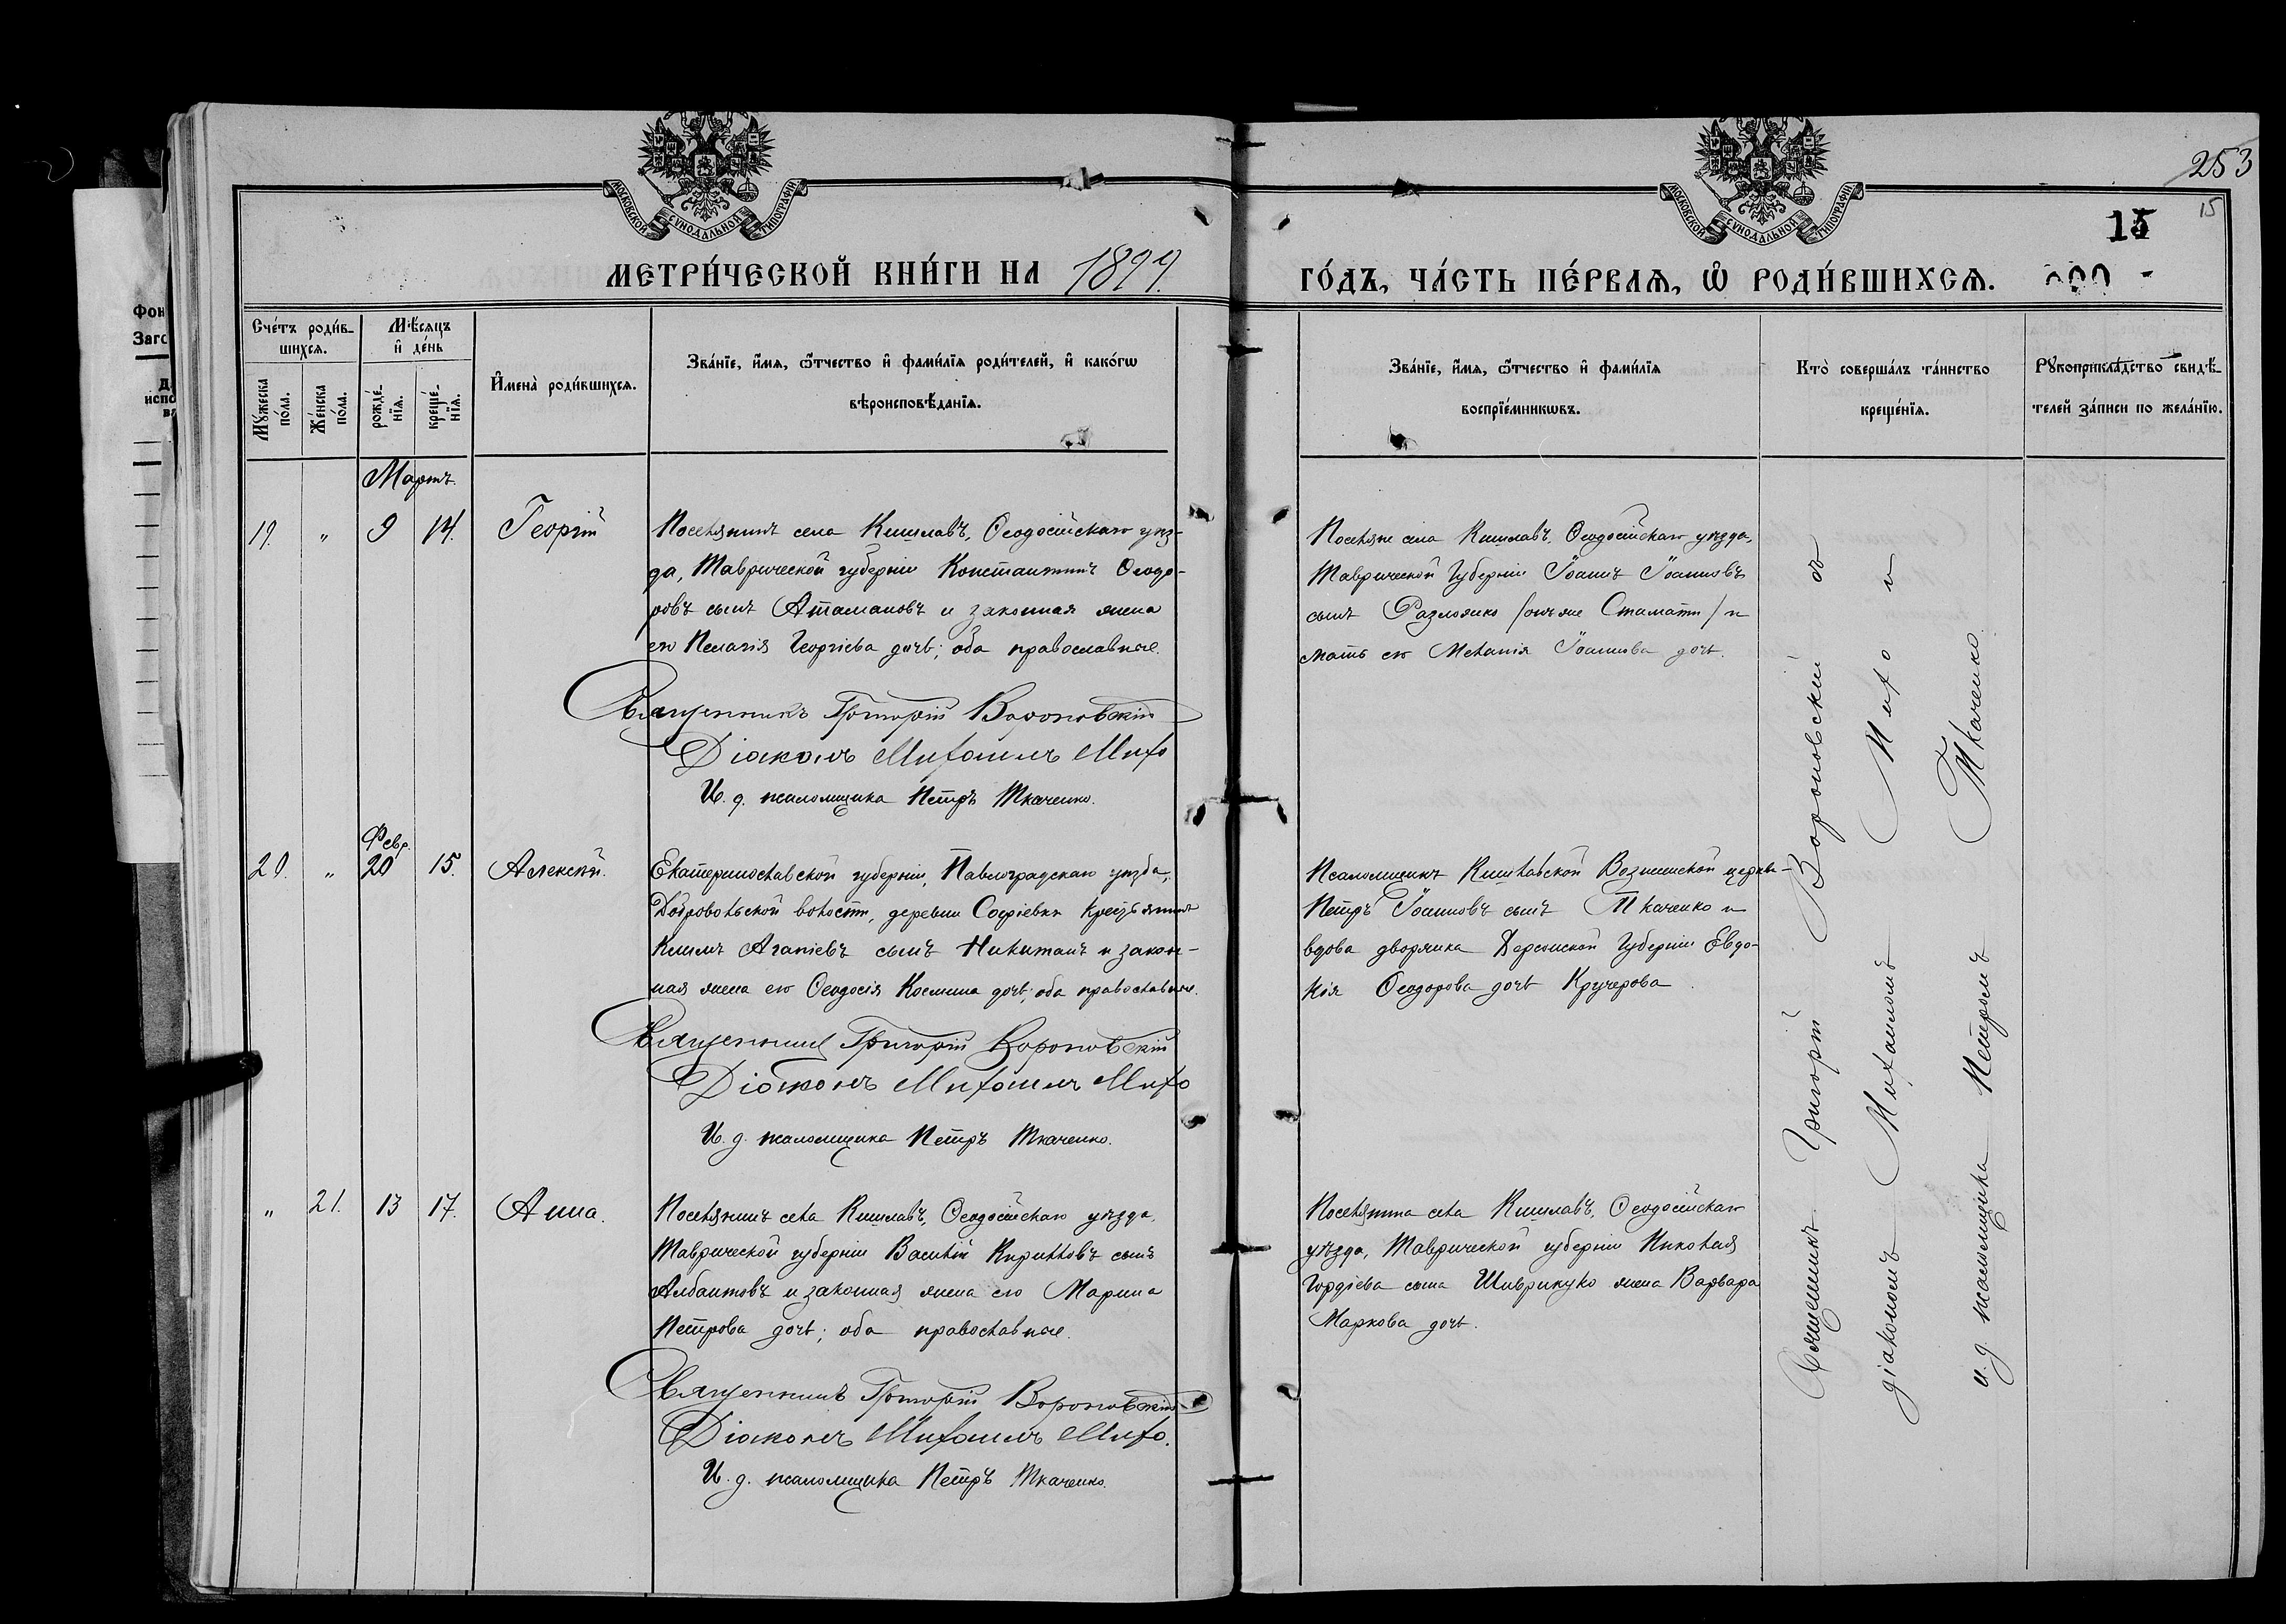 253
15
15
МОСКОВСКОЙ СѴНОДАЛЬНОЙ ТИПОГРАФІИ
МОСКОВСКОЙ СѴНОДАЛЬНОЙ ТИПОГРАФІИ
МЕТРИ́ЧЕСКОЙ КНИ́ГИ НА 1897.
ГО́ДЪ, ЧА́СТЬ ПЕ́РВАЯ, Ѽ РОДИ́ВШИХСЯ.
Сче́тъ роди́в-
шихся.
Му́жеска
по́ла.
Же́нска
по́ла.
Мѣ́сяцъ
и҆ де́нь
рожде́-
нїя.
креще́-
нїя.
И҆мена̀ роди́вшихся.
Зва́нїе, и҆́мя, ѻ҆́тчество и҆ фами́лїя роди́телей, и҆ како́гѡ
вѣроисповѣ́данїя.
Зва́нїе, и҆́мя, ѻ҆́тчество и҆ фами́лїя
воспрїе́мникѡвъ.
Кто̀ соверша́лъ та́инство
креще́нїя.
Рꙋкоприкла́дство свидѣ́-
телей за́писи по жела́нїю.
Мартъ.
19. " 9 14. Георгій
Поселянинъ села Кишлавъ, Ѳеодосійскаго уѣз-
да, Таврической губерніи Константинъ Ѳеодо-
ровъ сынъ Атамановъ и законная жена
его Пелагія Георгіева дочь; оба православные.
Священникъ Григорій Вороновскій
Діаконъ Михаилъ Михо
И. д. псаломщика Петръ Ткаченко.
Поселяне села Кишлавъ, Ѳеодосійскаго уѣзда,
Таврической Губерніи Іоаннъ Іоанновъ
сынъ Размоянко /онъ же Стамати/ и
мать его Меланія Іоаннова дочь.
Февр.
20. " 20 15. Алексѣй.
Екатеринославской губерніи, Павлоградскаго уѣзда,
Добровольской волости, деревни Софіевки крестьянинъ
Климъ Агапіевъ сынъ Никитанъ и закон-
ная жена его Ѳеодосія Космина дочь; оба православные.
Священникъ Григорій Вороновскій
Діаконъ Михаилъ Михо
И. д. псаломщика Петръ Ткаченко.
Псаломщикъ Кишлавской Вознесенской церкви-
Петръ Іоанновъ сынъ Ткаченко и
вдова дворянка Херсонской Губерніи Евдо-
кія Ѳеодорова дочь Кручерова.
" 21. 13 17. Анна.
Поселянинъ села Кишлавъ, Ѳеодосійскаго уѣзда,
Таврической губерніи Василій Кирилловъ сынъ
Албантовъ и законная жена его Марина
Петрова дочь; оба православные.
Священникъ Григорій Вороновскій
Діаконъ Михаилъ Михо.
И. д. псаломщика Петръ Ткаченко.
Поселянина села Кишлавъ, Ѳеодосійскаго
уѣзда, Таврической губерніи Николая
Гордіева сына Шиврикуко жена Варвара
Маркова дочь.
Священникъ Григорій Вороновскій съ
діакономъ Михаиломъ Михо и
и. д. псаломщика Петромъ Ткаченко